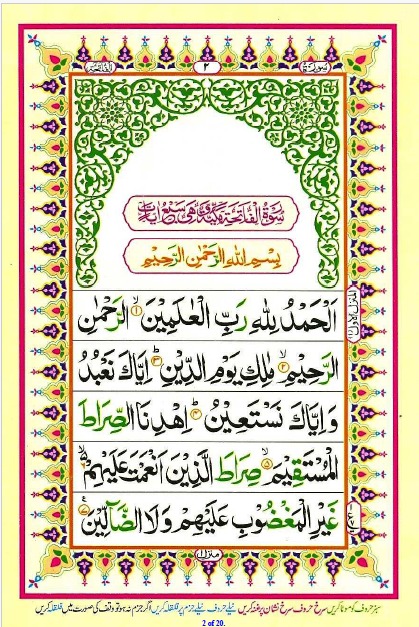 سورة ٢ الفاتحة
سُوْرَةُ الْفَاتِحَةِ مَكِّيَّةٌ وَّهِيَ سَبْعُ اٰيَاتٍ
بِسْمِ اللهِ الرَّحْمٰنِ الرَّحِيْمِ
اَلْحَمْدُ لِلّٰهِ رَبِّ الْعٰلَمِيْنَ ۙ‏﴿۱﴾ الرَّحْمٰنِ
الرَّحِيْمِ ۙ‏﴿۲﴾ مٰلِكِ يَوْمِ الدِّيْنِ ؕ‏﴿۳﴾ اِيَّاكَ نَعْبُدُ
وَ اِيَّاكَ نَسْتَعِيْنُ ؕ‏﴿۴﴾ اِهْدِنَا الصِّرَاطَ
الْمُسْتَقِيْمَ ۙ‏﴿۵﴾ صِرَاطَ الَّذِيْنَ اَنْعَمْتَ عَلَيْهِمْ ۙ۬‏﴿۶﴾
غَيْرِ الْمَغْضُوْبِ عَلَيْهِمْ وَ لَا الضَّآلِّيْنَ‏﴿۷﴾
المنزل الاول ۱
منزل ۱
سبز حروف کو موٹا کریں سرخ حروف سرخ نشان پر غنہ کریں نیلے حروف نیلے جزم پر قلقلہ کریں اگر جزم نہ ہو تو وقف کی صورت میں قلقلہ کریں
2 of 20.